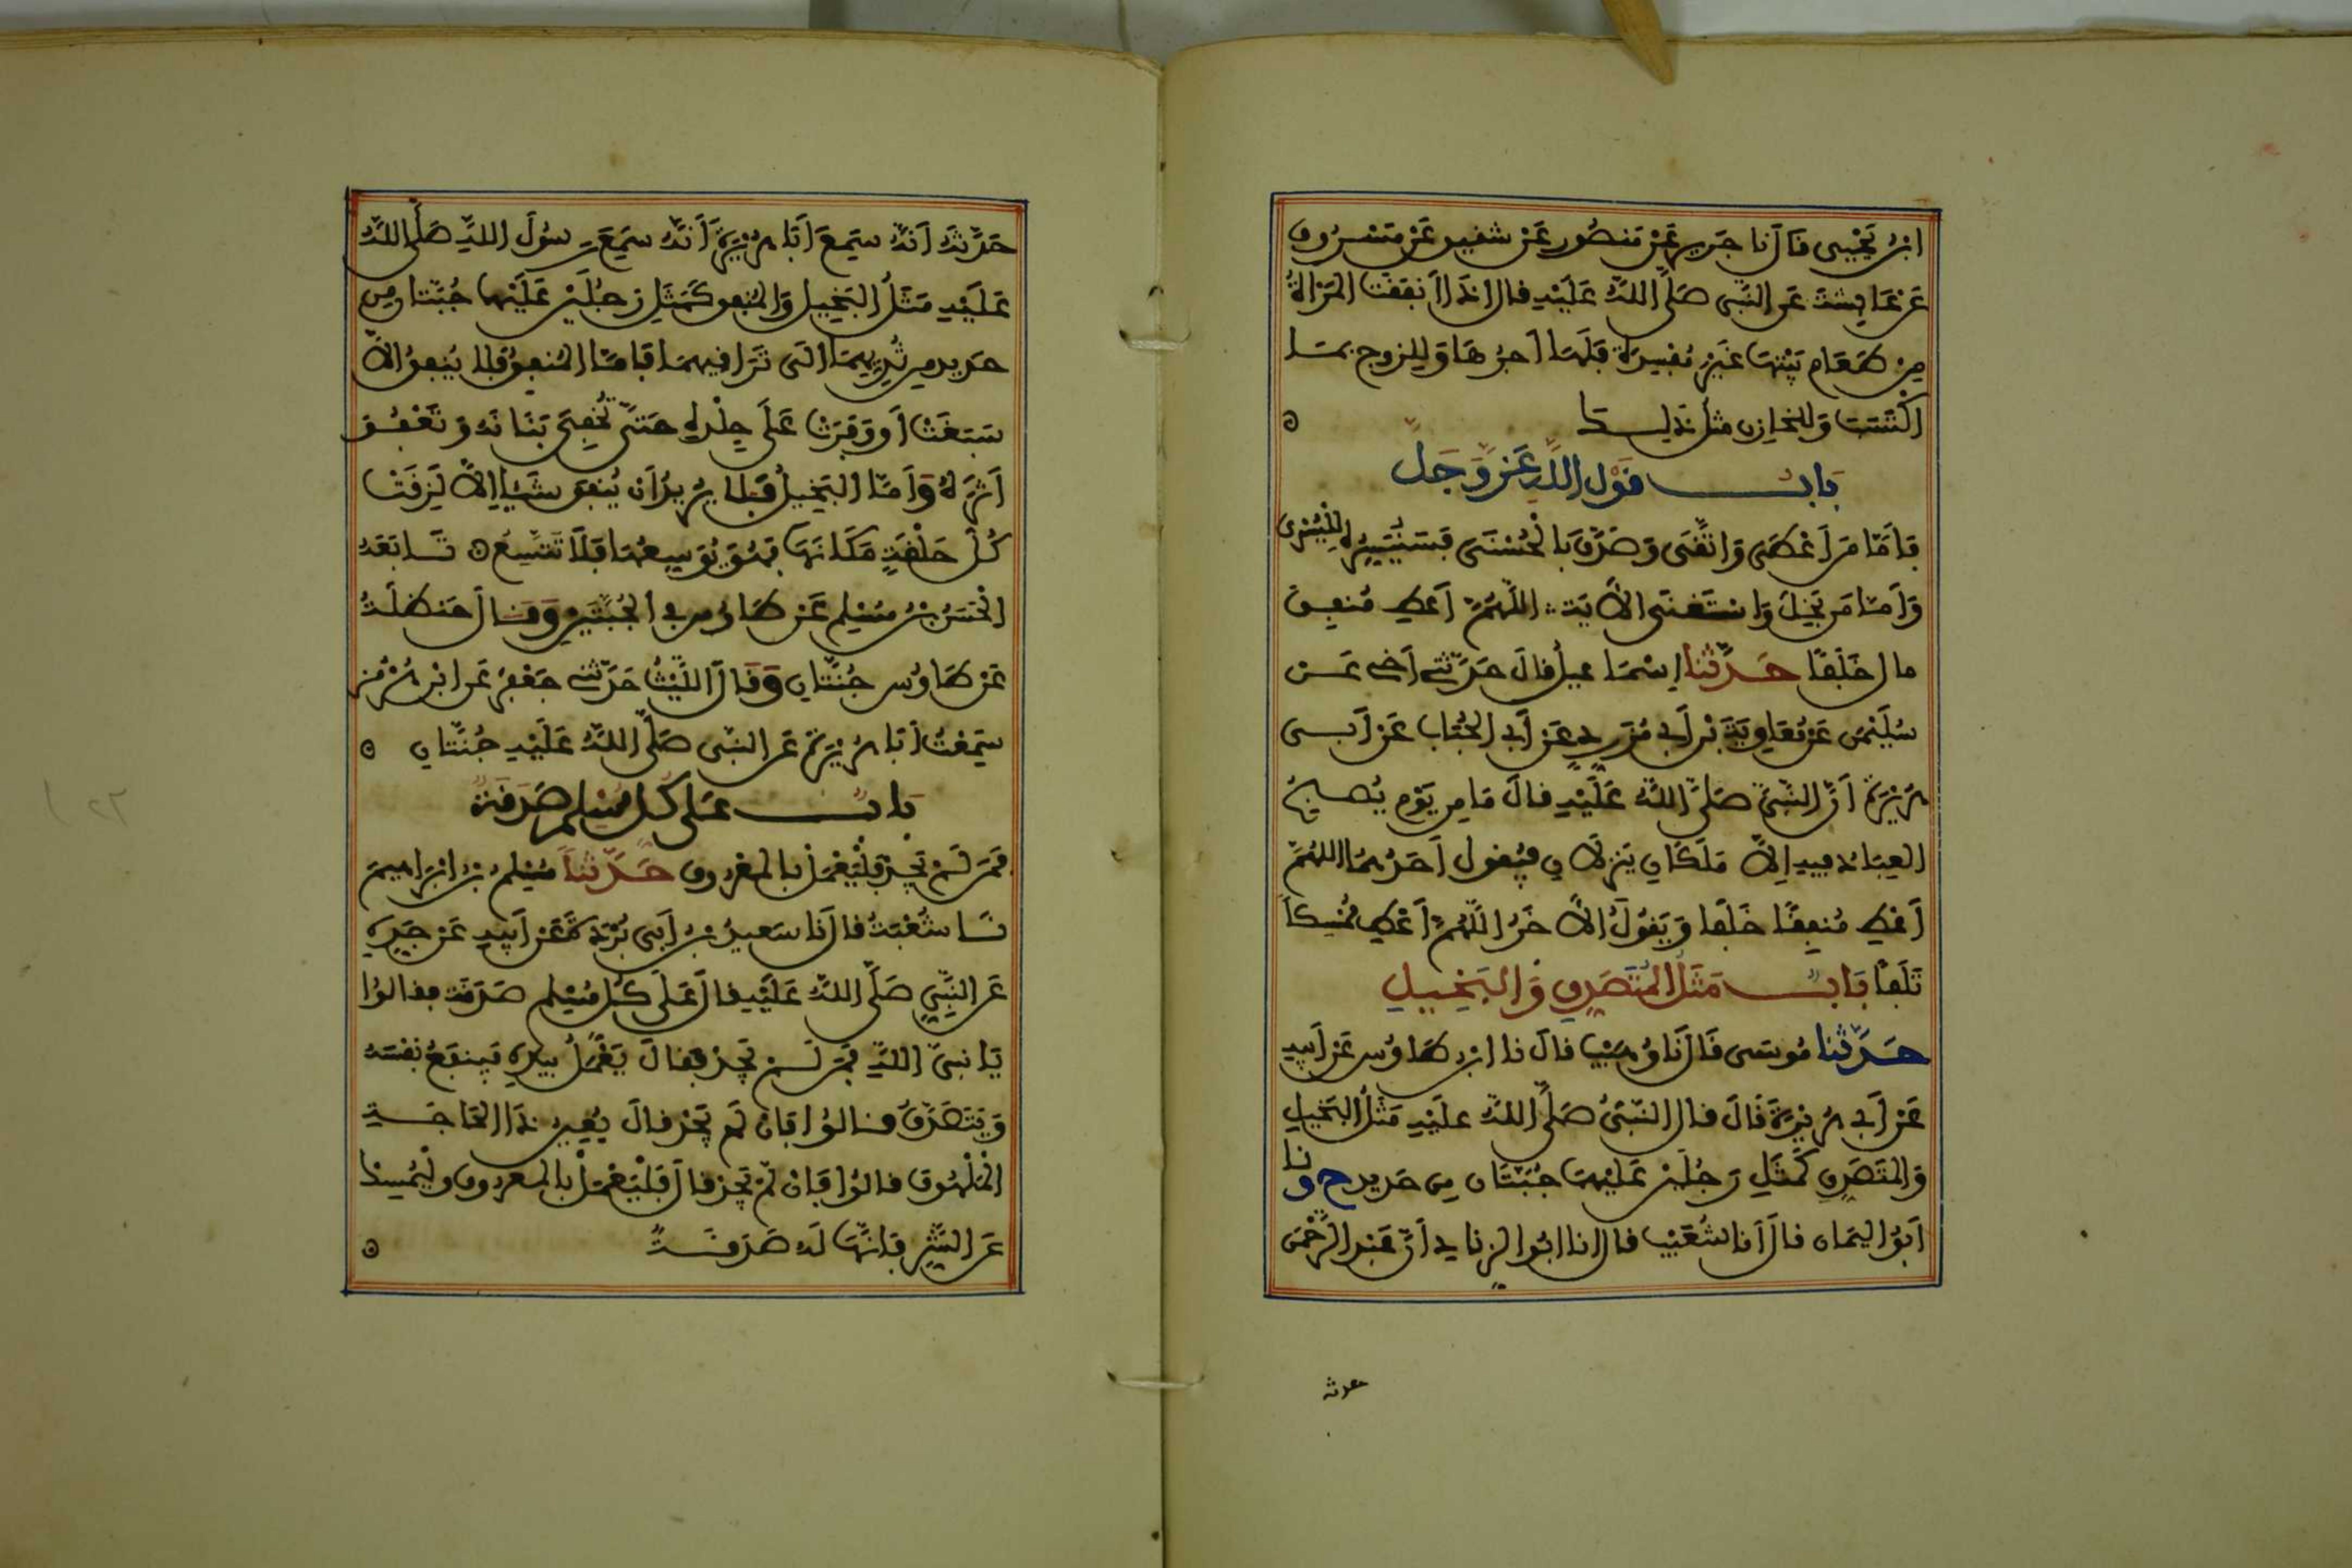 ابْنُ يَحْيَى قَالَ نا جَرِيرٌ عَنْ مَنْصُورٍ عَنْ شَقِيقٍ عَنْ مَسْرُوقٍ
عَنْ عَايِشَةَ عَنِ النَّبِيِّ صَلَّى اللَّهُ عَلَيْهِ قال إِذَا أَنْفَقَتِ الْمَرْأَةُ
مِنْ طَعَامِ بَيْتِهَا غَيْرَ مُفْسِدَةٍ فَلَهَا أَجْرُهَا وَلِلزوج بِمَا
اكْتَسَبَ وَلِلْخَازِنِ مِثْلُ ذَلِكَ
بَابُ قَوْلِ اللَّهِ عَزَّ وَجَلَّ
فَأَمَّا مَنْ أَعْطَى وَاتَّقَى وَصَدَّقَ بِالْحُسْنَى فَسَنُيَسِّرُهُ لِلْيُسْرَى
وَأَمَّا مَنْ بَخِلَ وَاسْتَغْنَى الْآيَةَ اللَّهُمَّ أَعْطِ مُنْفِقَ
مال خَلَفًا حَدَّثَنَا إِسْمَاعِيلُ قَالَ حَدَّثَنِي أَخِي عَنْ
سُلَيْمَنَ عَنْ مُعَاوِيَةَ بْنِ أَبِي مُزَرِّدٍ عَنْ أَبِي الْحُبَابِ عَنْ أَبِي
هُرَيْرَةَ أَنَّ النَّبِيَّ صَلَّى اللَّهُ عَلَيْهِ قَالَ مَا مِنْ يَوْمٍ يُصْبِحُ
الْعِبَادُ فِيهِ إِلَّا مَلَكَانِ يَنْزِلَانِ فَيَقُولُ أَحَدُهُمَا اللهُمَّ
أَعْطِ مُنْفِقًا خَلَفًا وَيَقُولُ الْآخَرُ اللَّهُمَّ أَعْطِ مُمْسِكًا
تَلَفًا بَابُ مَثَلُ الْمُتَصَدِّقِ وَالْبَخِيلِ
حَدَّثَنَا مُوسَى قَالَ نَا وُهَيْبٌ قَالَ نا ابْنُ طَاوُسٍ عَنْ أَبِيهِ
عَنْ أَبِي هُرَيْرَةَ قَالَ قال النَّبِيُّ صَلَّى اللَّهُ عَلَيْهِ مَثَلُ الْبَخِيلِ
وَالْمُتَصَدِّقِ كَمَثَلِ رَجُلَيْنِ عَلَيْهِمَا جُبَّتَانِ مِنْ حَدِيدٍ ح وَنا
أَبُو الْيَمَانِ قَالَ أَنَا شُعَيْبٌ قَالَ انا أَبُو الزِّنَادِ أَنَّ عَبْدَ الرَّحْمَنِ
حدثه
حَدَّثَهُ أَنَّهُ سَمِعَ أَبَا هُرَيْرَةَ أَنَّهُ سَمِعَ رَسُولَ اللَّهِ صَلَّى اللَّهُ
عَلَيْهِ مَثَلُ الْبَخِيلِ وَالْمُنْفِقِ كَمَثَلِ رَجُلَيْنِ عَلَيْهِمَا جُبَّتَانِ مِنْ
حَدِيدٍ مِنْ ثُدِيِّهِمَا إِلَى تَرَاقِيهِمَا فَأَمَّا الْمُنْفِقُ فَلَا يُنْفِقُ إِلَّا
سَبَغَتْ أَوْ وَفَرَتْ عَلَى جِلْدِهِ حَتَّى تُخْفِيَ بَنَانَهُ وَتَعْفُوَ
أَثَرَهُ وَأَمَّا الْبَخِيلُ فَلَا يُرِيدُ أَنْ يُنْفِقَ شَيْئًا إِلَّا لَزِقَتْ
كُلُّ حَلْقَةٍ مَكَانَهَا فَهُوَ يُوَسِّعُهَا فَلَا تَتَّسِعُ تَابَعَهُ
الْحَسَنُ بْنُ مُسْلِمٍ عَنْ طَاوُسٍ فِي الْجُبَّتَيْنِ وَقَالَ حَنْظَلَةُ
عَنْ طَاوُسٍ جُنَّتَانِ وَقَالَ اللَّيْثُ حَدَّثَنِي جَعْفَرٌ عَنِ ابْنِ هُرْمُزَ
سَمِعْتُ أَبَا هُرَيْرَةَ عَنِ النَّبِيِّ صَلَّى اللَّهُ عَلَيْهِ جُنَّتَانِ
بَابُ عَلَى كُلِّ مُسْلِمٍ صَدَقَةٌ
فَمَنْ لَمْ يَجِدْ فَلْيَعْمَلْ بِالْمَعْرُوفِ حَدَّثَنَا مُسْلِمُ بْنُ إِبْرَاهِيمَ
نَا شُعْبَةُ قَالَ نا سَعِيدُ بْنُ أَبِي بُرْدَةَ عَنْ أَبِيهِ عَنْ جَدِّهِ
عَنِ النَّبِيِّ صَلَّى اللَّهُ عَلَيْهِ قَالَ عَلَى كُلِّ مُسْلِمٍ صَدَقَةٌ فَقَالُوا
يَا نَبِيَّ اللَّهِ فَمَنْ لَمْ يَجِدْ فَقَالَ يَعْمَلُ بِيَدِهِ فَيَنْفَعُ نَفْسَهُ
وَيَتَصَدَّقُ قَالُوا فَإِنْ لَمْ يَجِدْ قَالَ يُعِينُ ذَا الْحَاجَةِ
الْمَلْهُوفَ قَالُوا فَإِنْ لَمْ يَجِدْ قَالَ فَلْيَعْمَلْ بِالْمَعْرُوفِ وَلْيُمْسِكْ
عَنِ الشَّرِّ فَإِنَّهَا لَهُ صَدَقَةٌ